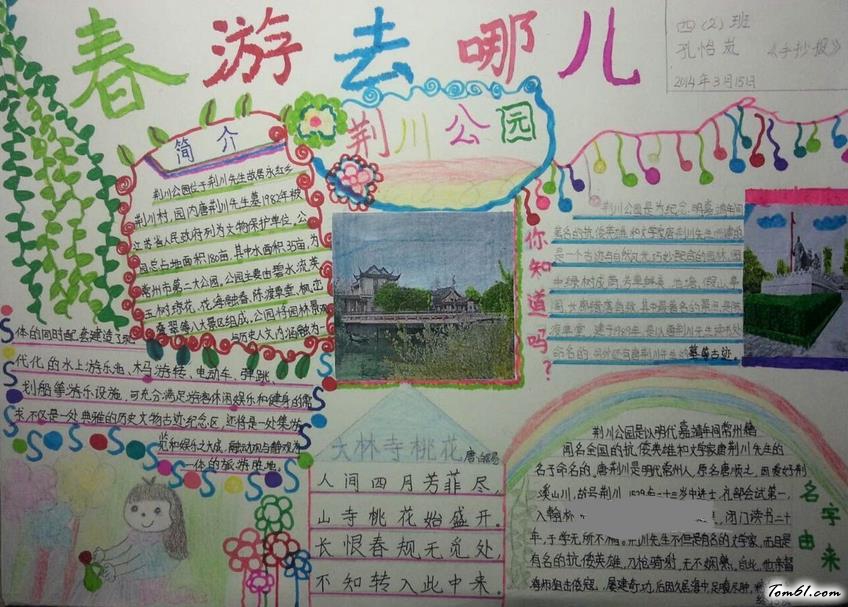 春游去哪儿
四（2）班
孔怡岚 《手抄报》
2014年3月15日
简介
荆川公园
荆川公园位于荆川先生故居永红乡
荆川村,园内唐荆川先生墓1982年被
江苏省人民政府列为文物保护单位,公
园总占地面积180亩,其中水面积35亩,为
常州市第二大公园。公园主要由碧水流芳
玉树琼花、花海融春、陈渡枫正
叠翠等八大景区组成,公园将园林景观
与历史人文内涵融为一
体的同时配套建造了现
代化的水上游乐池、木马游转、电动车、弹跳、
划船等游乐设施,可充分满足游客休闲娱乐和健身的需
求,不仅是一处典雅的历史文物古迹纪念区,还将是一处集游
览和娱乐之大成,融动观与静观为
一体的旅游胜地。
你知道吗?
荆川公园是为纪念明嘉靖年间
著名的抗倭英雄和文学家唐荆川而修建的
是一个古迹与自然风光巧妙配合的园林,园
中绿树成荫
墓等古迹。
大林寺桃花
唐·白居易
人间四月芳菲尽,
山寺桃花始盛开。
长恨春规无觅处,
不知转入此中来。
名字由来
荆川公园是以明代嘉靖年间常州籍
闻名全国的抗倭英雄和文学家唐荆川先生的
名字命名的。唐荆川是明代常州人,原名唐顺之,因爱好荆
溪山川,故号荆川。1529年二十三岁中进士,礼部会试第一,
入翰林 ,闭门读书二十
年,于学无所不精。荆川先生不但是有名的文学家,而且是
有名的抗倭英雄,刀枪骑射,无不娴熟。
Tom61.com